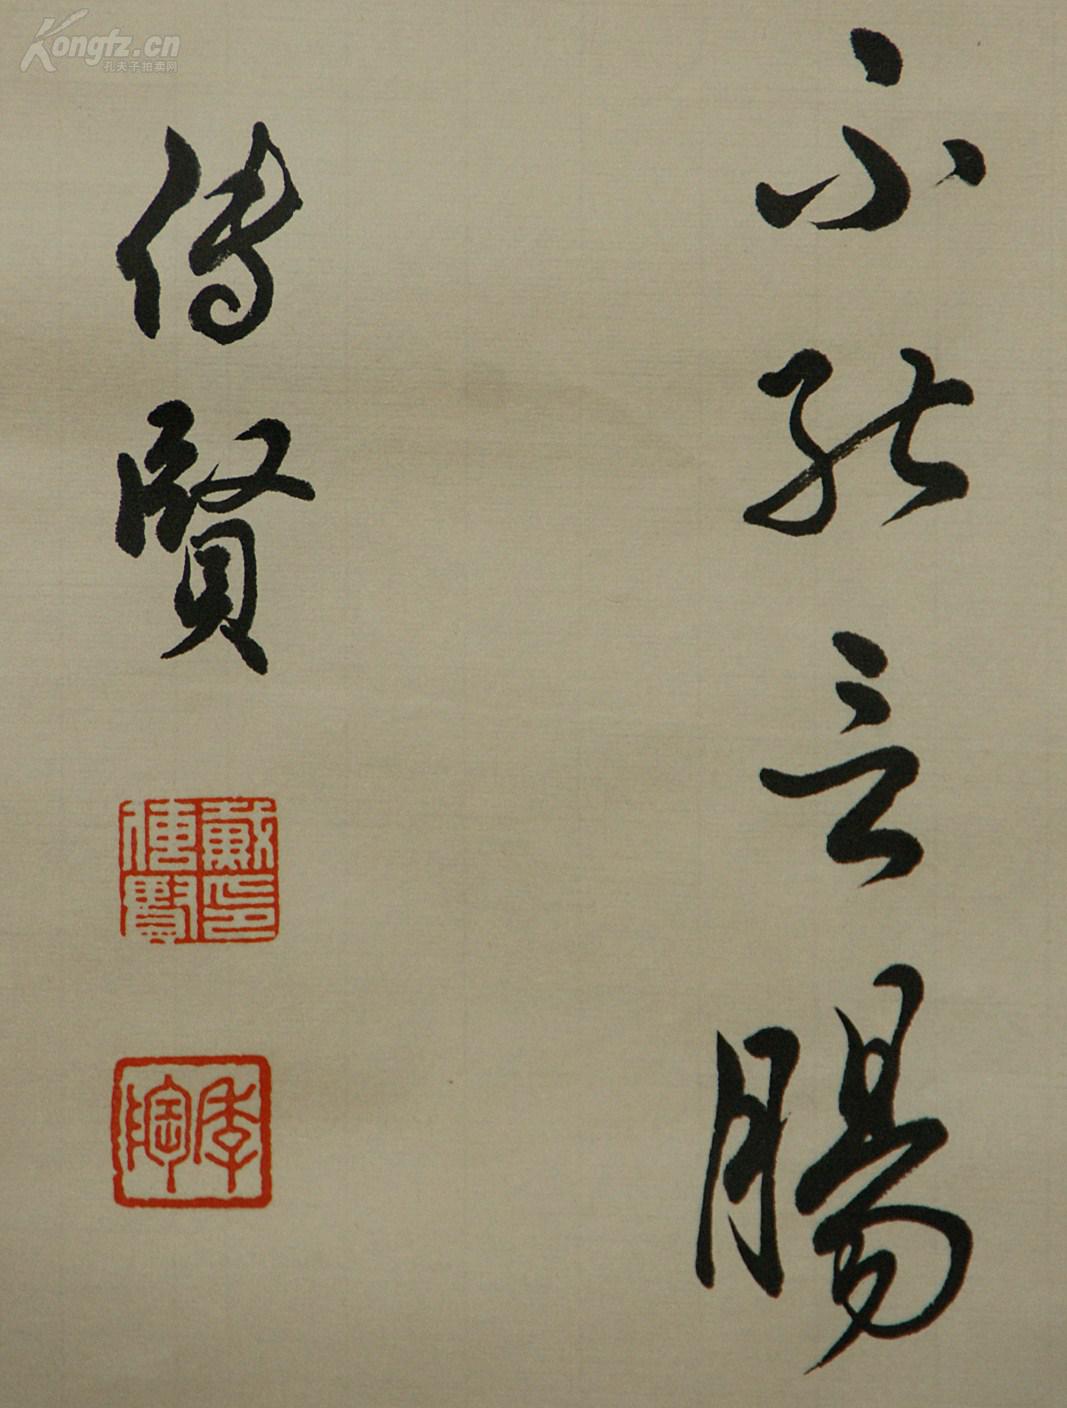 不能言腸
傳賢
戴傳賢印
季陶
Kongfz.cn
孔夫子拍卖网